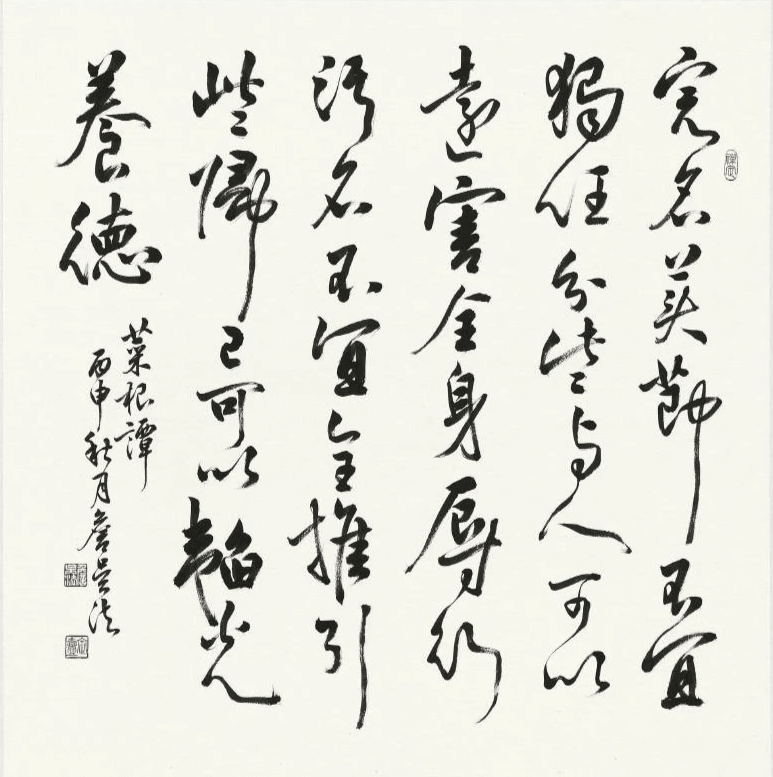 完名美節不宜
獨任分些与人可以
遠害全身辱行
污名不宜全推引
些歸己可以韜光
養德
菜根譚
丙申秋月詹吳法